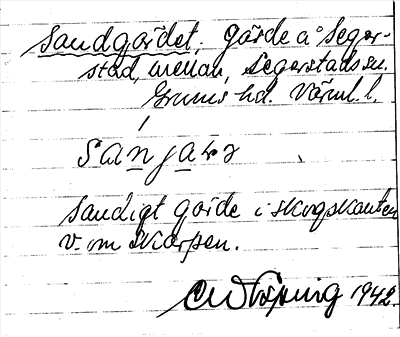 Sandgärdet, gärde å Seger-
stad, mellan, Segerstads sn.
Grums hd. Värml. l.
sanjarɜ
Sandigt gärde i skogskanten
v. om Skarpen.
1942.